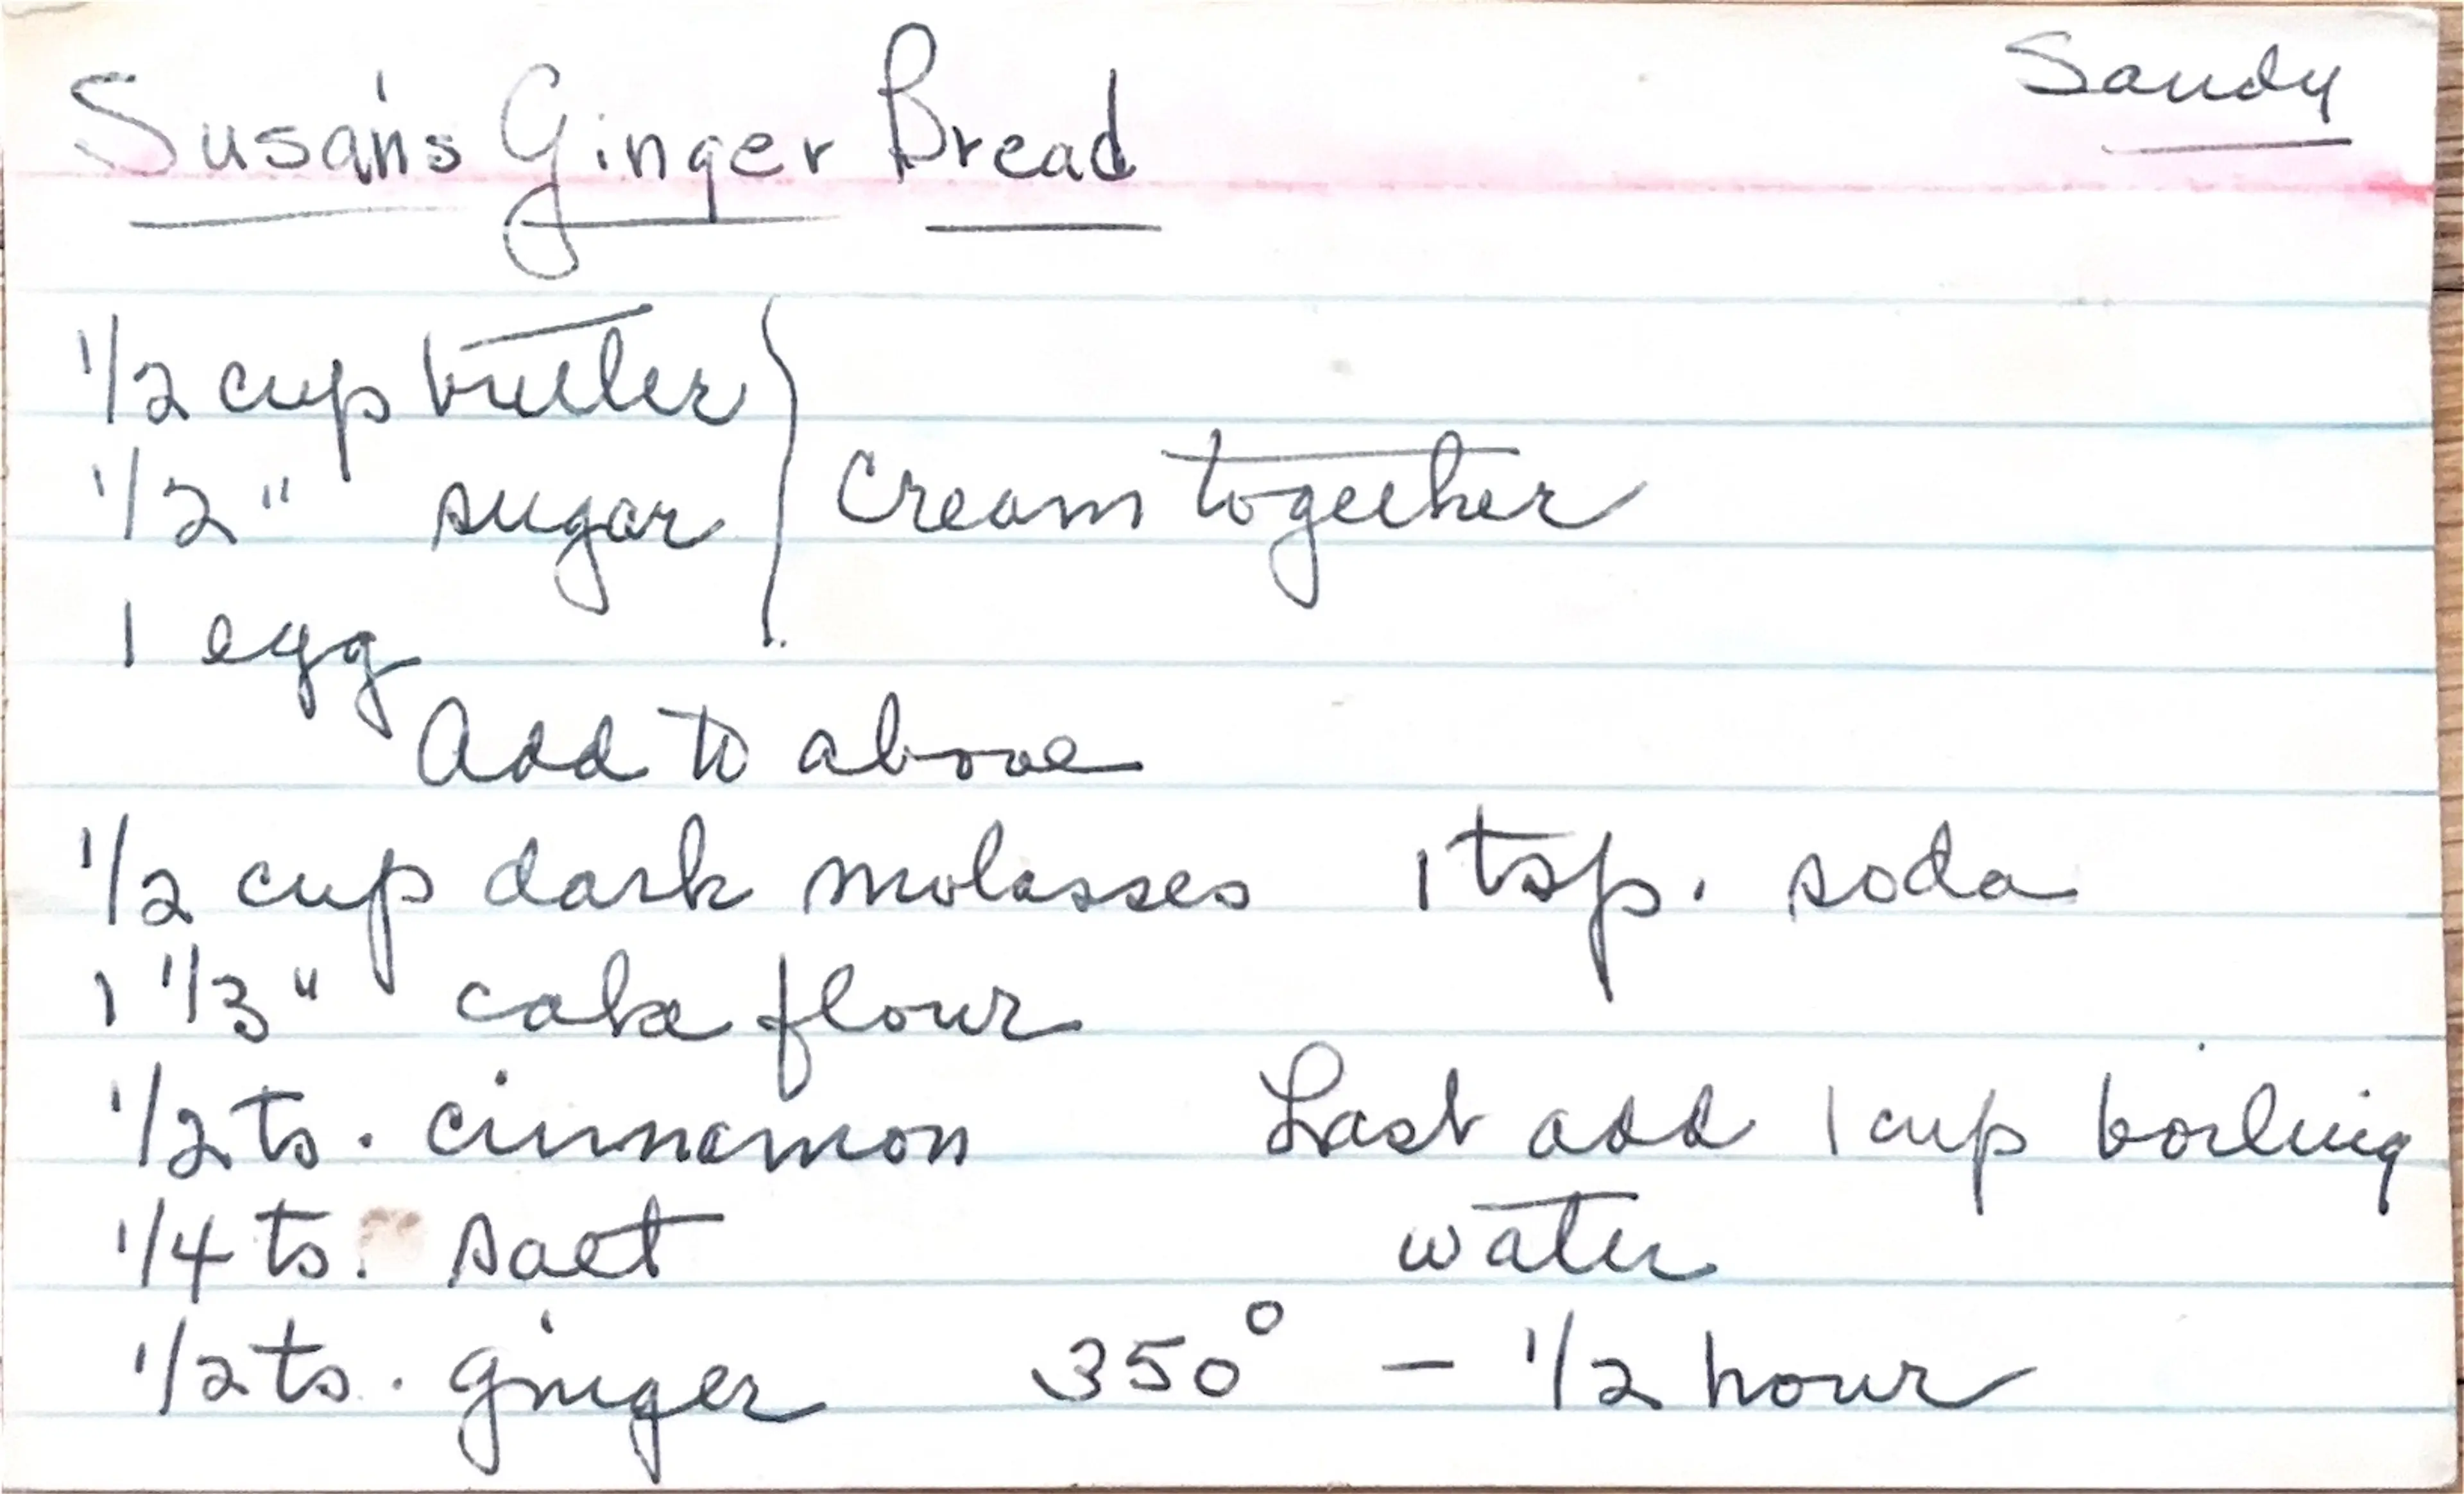 Susan's Ginger Bread
Sandy
1/2 cup butter
1/2 " sugar
cream together
1 egg
Add to above
1/2 cup dark molasses 1 tsp. soda
1 1/3 " cake flour
1/2 ts. cinnamon
Last add 1 cup boiling
1/4 ts. salt
water
1/2 ts. ginger
350° - 1/2 hour